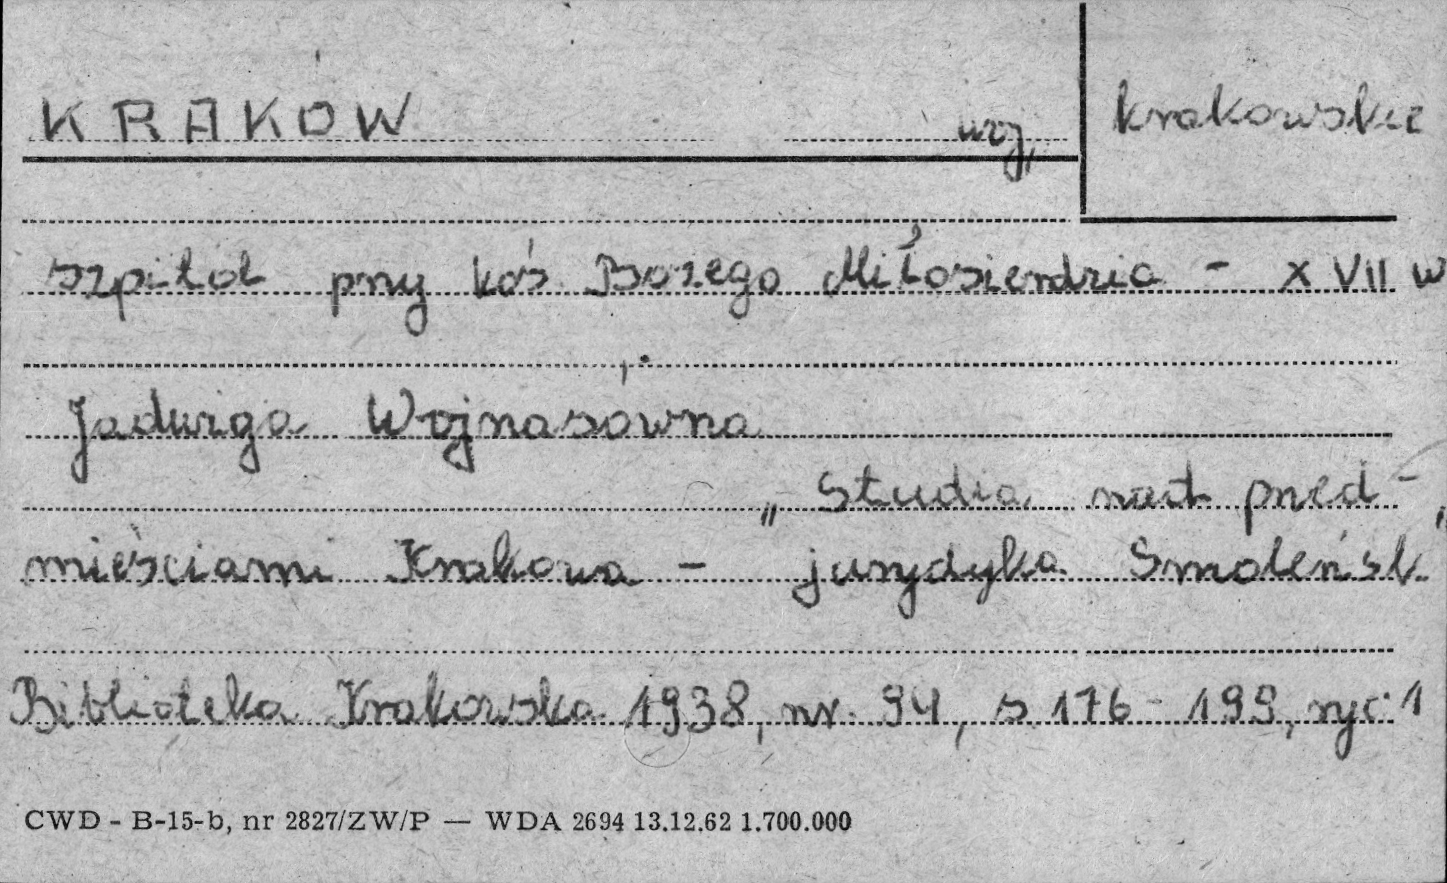 KRAKÓW woj. krakowskie
szpital przy koś Bożego Miłosierdzia - XVII w
Jadwiga Wojnasówna
„Studia nad przed-
mieściami Krakowa - jurydyka Smoleńsk"
Biblioteka Krakowska 1938, nr. 94, s 176 - 199, ryc 1
CWD - B-15-b, nr 2827/ZW/P — WDA 2694 13.12.62 1.700.000